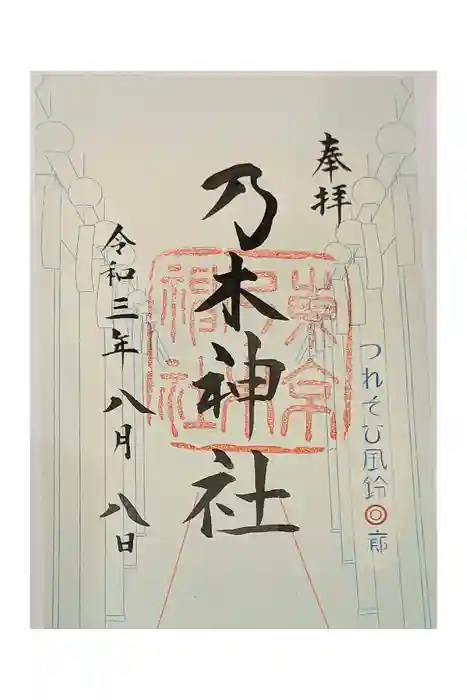 奉拝
つれそひ風鈴◎廊
乃木神社
東京
乃木
神社
令和三年八月八日